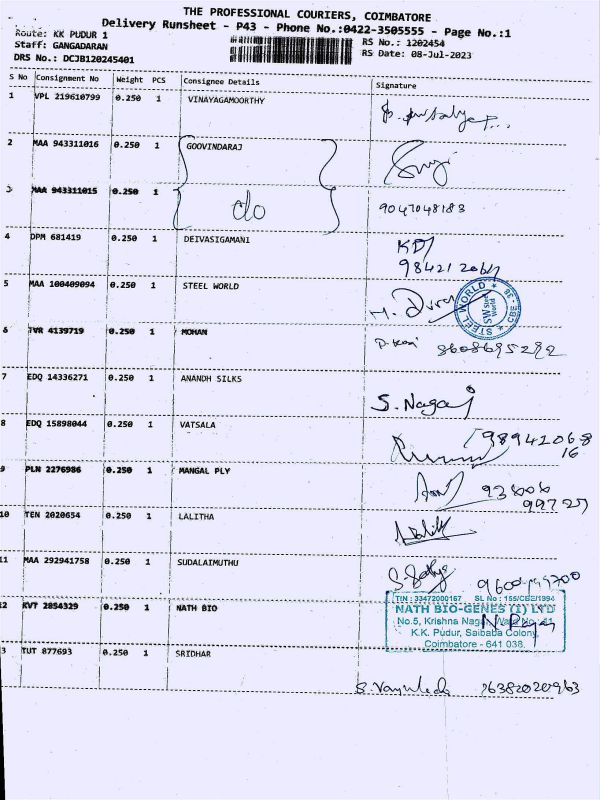 THE PROFESSIONAL COURIERS, COIMBATORE
Delivery Runsheet - P43 - Phone No.:0422-3505555 - Page No.:1
Route: KK PUDUR 1 RS No.: 1202454
Staff: GANGADARAN RS Date: 08-Jul-2023
DRS No.: DCJB120245401
S No Consignment No Weight PCS Consignee Details Signature
1 VPL 219610799 0.250 1 VINAYAGAMOORTHY
2 MAA 943311016 0.250 1 GOOVINDARAJ
3 MAA 943311015 0.250 1 do 9047048183
4 DPM 681419 0.250 1 DEIVASIGAMANI KD
98421 2064
5 MAA 100409094 0.250 1 STEEL WORLD
STEEL WORLD CBE - 38
SW Steel World
6 TVR 4139719 0.250 1 MOHAN 8608695292
7 EDQ 14336271 0.250 1 ANANDH SILKS
S. Nagaj
8 EDQ 15898044 0.250 1 VATSALA 98941068
16
9 PLN 2276986 0.250 1 MANGAL PLY 938006
99727
10 TEN 2020654 0.250 1 LALITHA
11 MAA 292941758 0.250 1 SUDALAIMUTHU
12 KVT 2854329 0.250 1 NATH BIO
TIN : 33472000167 SL No : 155/CBE/1994
NATH BIO-GENES (I) LTD
No.5, Krishna Nagar, Ward No : 11
K.K. Pudur, Saibaba Colony,
Coimbatore - 641 038.
3 TUT 877693 0.250 1 SRIDHAR